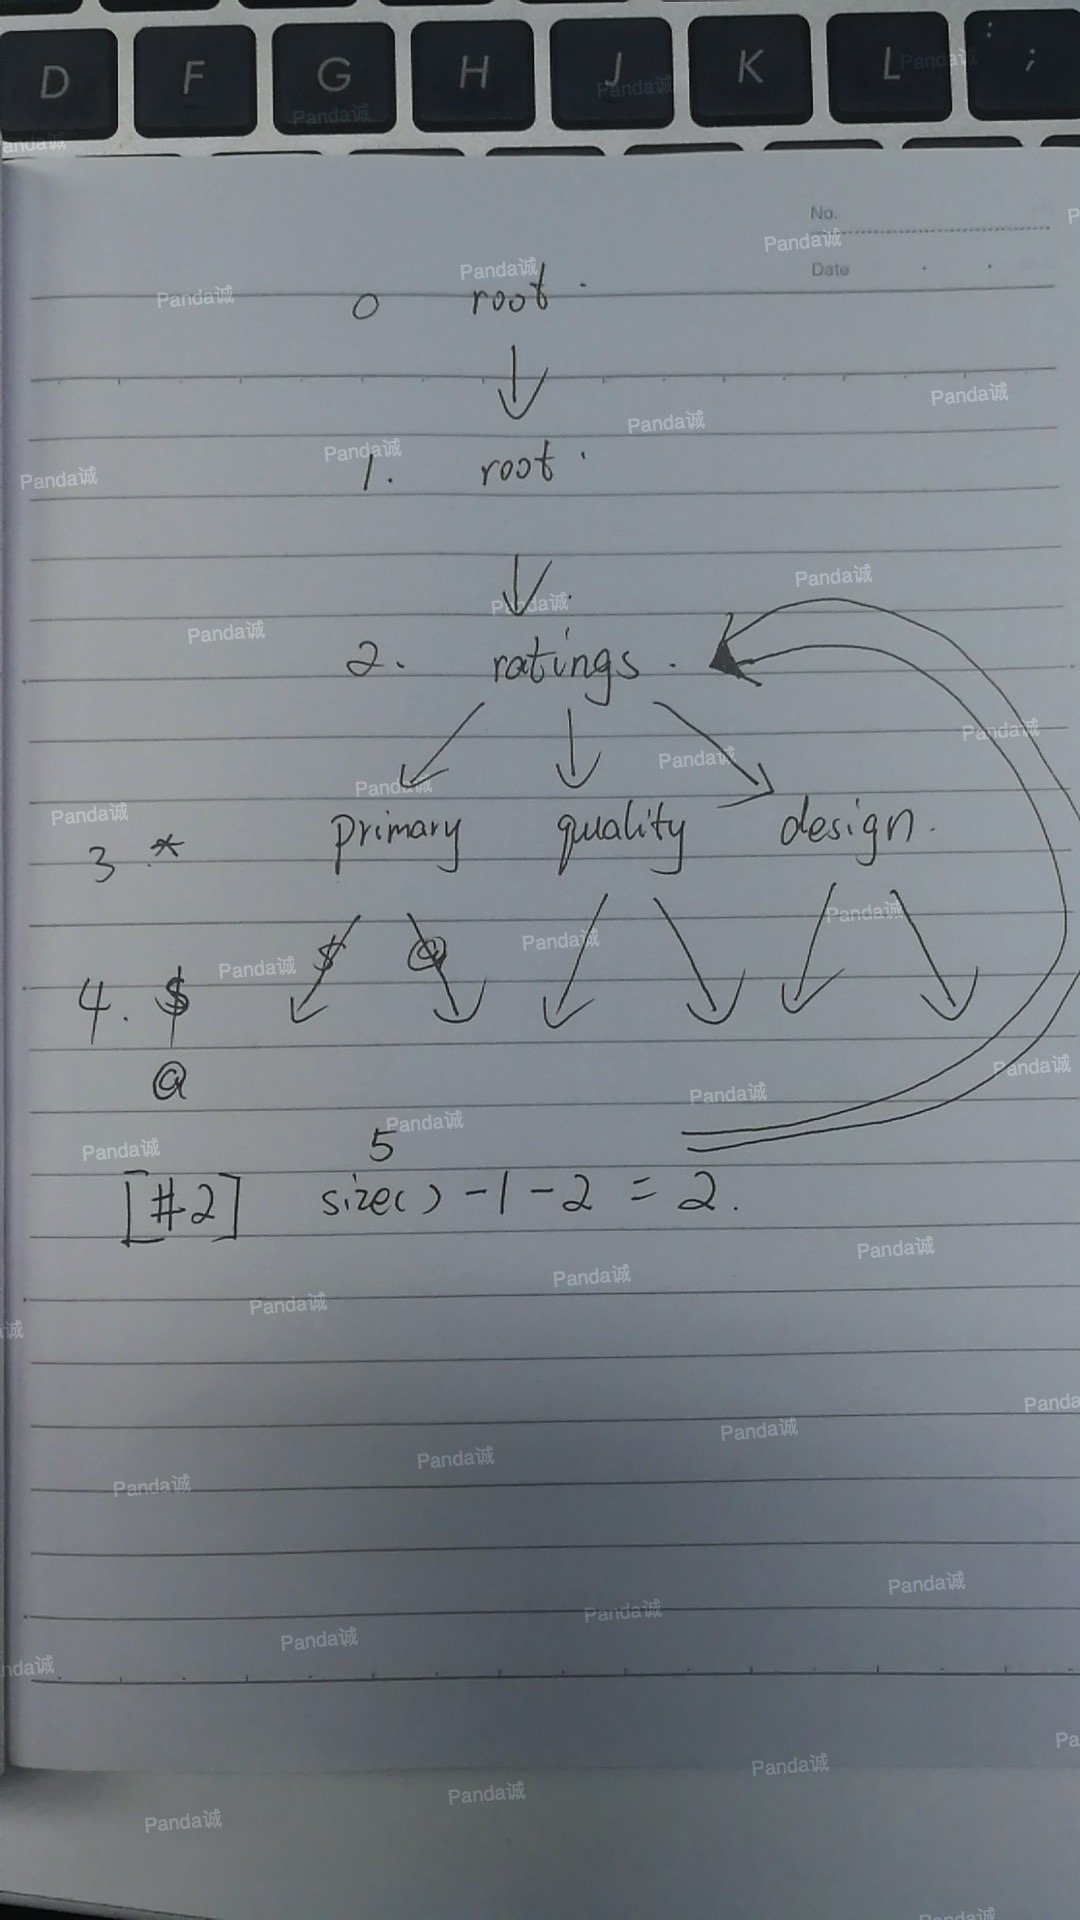 D F G H J K L : ;
No.
Date
0 root
1. root
2. ratings
3 * primary quality design
$ @
4. $
@
5
[#2] size() -1-2 = 2.
Panda诚